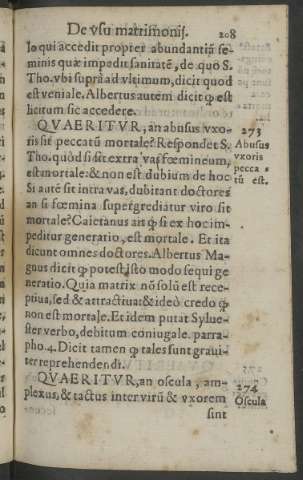 De vsu matrimonij. 208
lo qui accedit propter abundantiã se-
minis quæ impedit sanitatẽ, de quo S.
Tho. vbi suprà ad vltimum, dicit quod
est veniale. Albertus autem dicit q̃ est
licitum sic accedere.
QVAERITVR, an abusus vxo-
ris sit peccatũ mortale? Respondet S.
Tho. quòd si sit extra vas fœmineum,
est mortale: & non est dubium de hoc
Si autẽ sit intra vas, dubitant doctores
an si fœmina supergrediatur viro sit
mortale? Caietanus ait q̃ si ex hoc im-
peditur generatio, est mortale. Et ita
dicunt omnes doctores. Albertus Ma-
gnus dicit q̃ potest isto modo sequi ge
neratio. Quia matrix nõ solũ est rece-
ptiua, sed & attractiua: & ideò credo q̃
non est mortale. Et idem putat Sylue-
ster verbo, debitum coniugale. parra-
pho. 4. Dicit tamen q̃ tales sunt graui-
ter reprehendendi.
QVAERITVR, an oscula, am-
plexus, & tactus inter virũ & vxorem
sint
273
Abusus
vxoris
pecca
tũ est.
274
Oscula